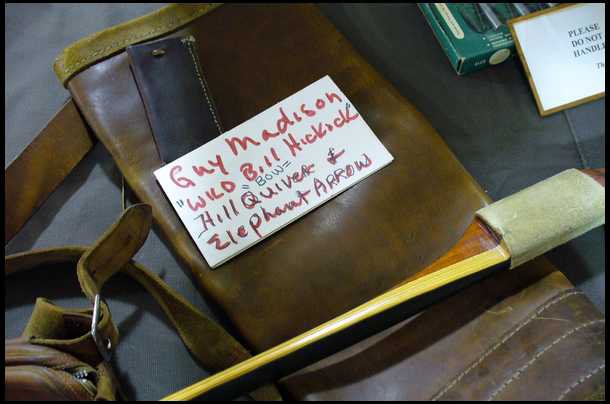 Guy Madison
"WILD Bill Hickock"
"BOW=
Hill Quiver &
Elephant ARROW
PLEASE
DO NOT
HANDL
Th